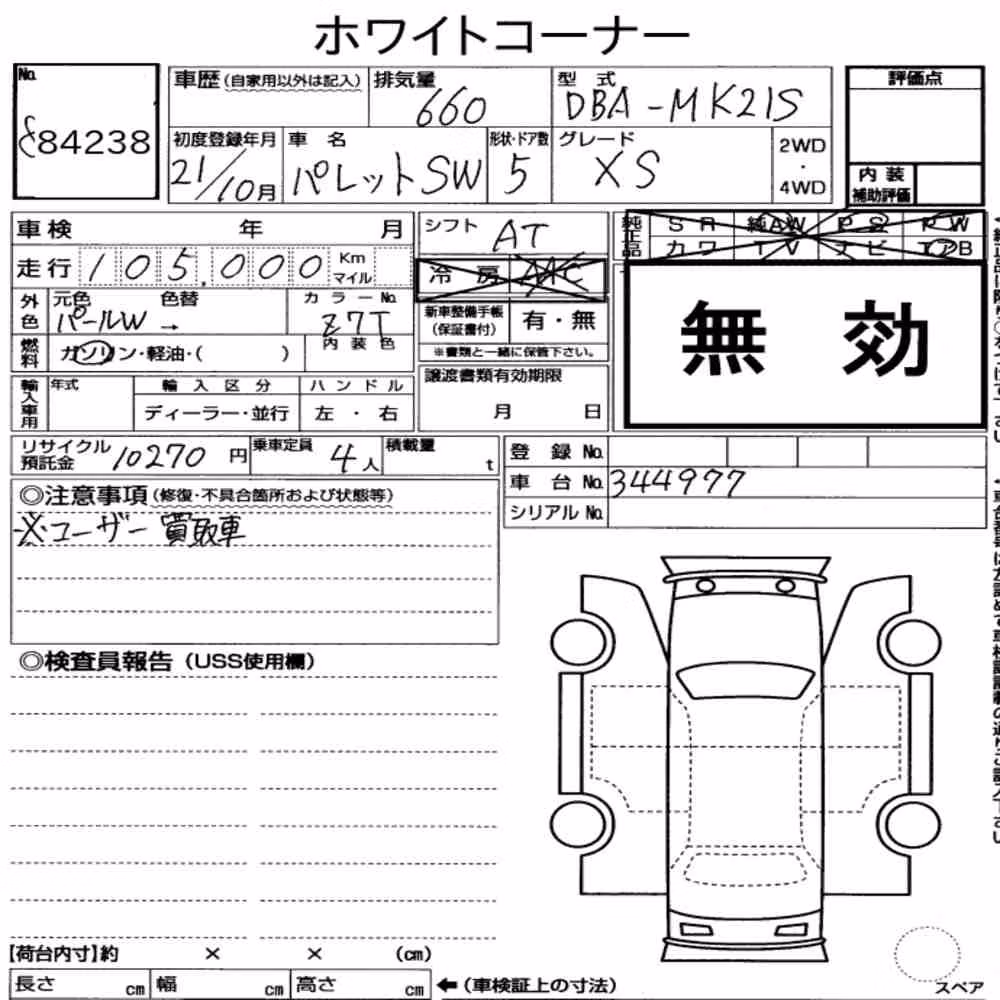 ホワイトコーナー
No.
84238
車歴(自家用以外は記入)
排気量
660
型 式
DBA-MK21S
評価点
初度登録年月
21/10月
車 名
パレットSW
形状・ドア数
5
グレード
XS
2WD
・
4WD
内 装
補助評価
車検 年 月
シフト
AT
純正品
S R 純AW P S P W
カ ワ T V ナ ビ
走行 105,000 Km
マイル
冷 房 AAC
無 効
外色
元色 色替
パールW →
カ ラ ー No.
Z7T
新車整備手帳
(保証書付)
有・無
燃料
ガソリン・軽油・( )
内 装 色
※書類と一緒に保管下さい。
輸入車用
年式
輸 入 区 分
ハ ン ド ル
ディーラー・並行
左 ・ 右
譲渡書類有効期限
月 日
リサイクル
預託金
10270 円
乗車定員
4人
積載量
t
登 録 No.
車 台 No. 344977
シリアル No.
◎注意事項(修復・不具合箇所および状態等)
※ユーザー買取車
◎検査員報告(USS使用欄)
【荷台内寸】約 × × (cm)
長さ cm 幅 cm 高さ cm ←(車検証上の寸法)
スペア